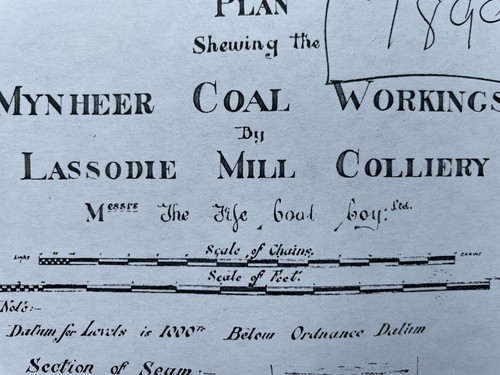 PLAN
Shewing the
MYNHEER COAL WORKINGS
By
LASSODIE MILL COLLIERY
Messrs The Fife Coal Coy: Ltd.
Scale of Chains.
Scale of Feet.
Note:-
Datum for Levels is 1000 Below Ordnance Datum
Section of Seam:-